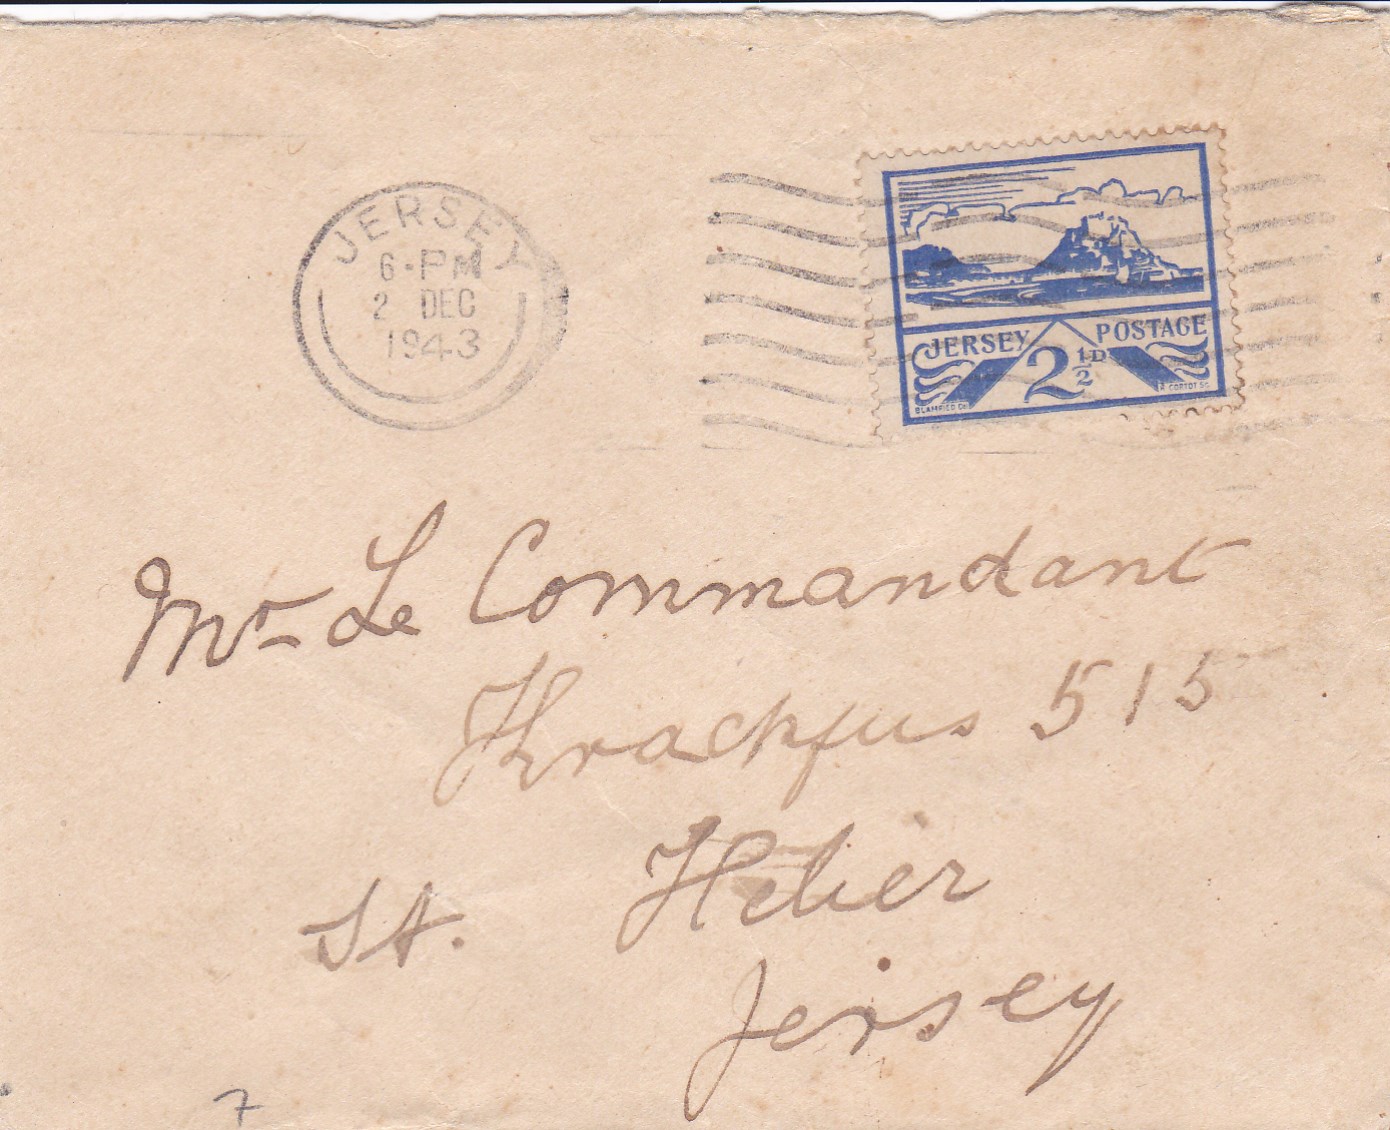 JERSEY
6·PM
2 DEC
1943
JERSEY POSTAGE
2½D
BLAMPIED DEL
R. CORTOT SC
Mr Le Commandant
Krachfus 515
St. Helier
Jersey
7